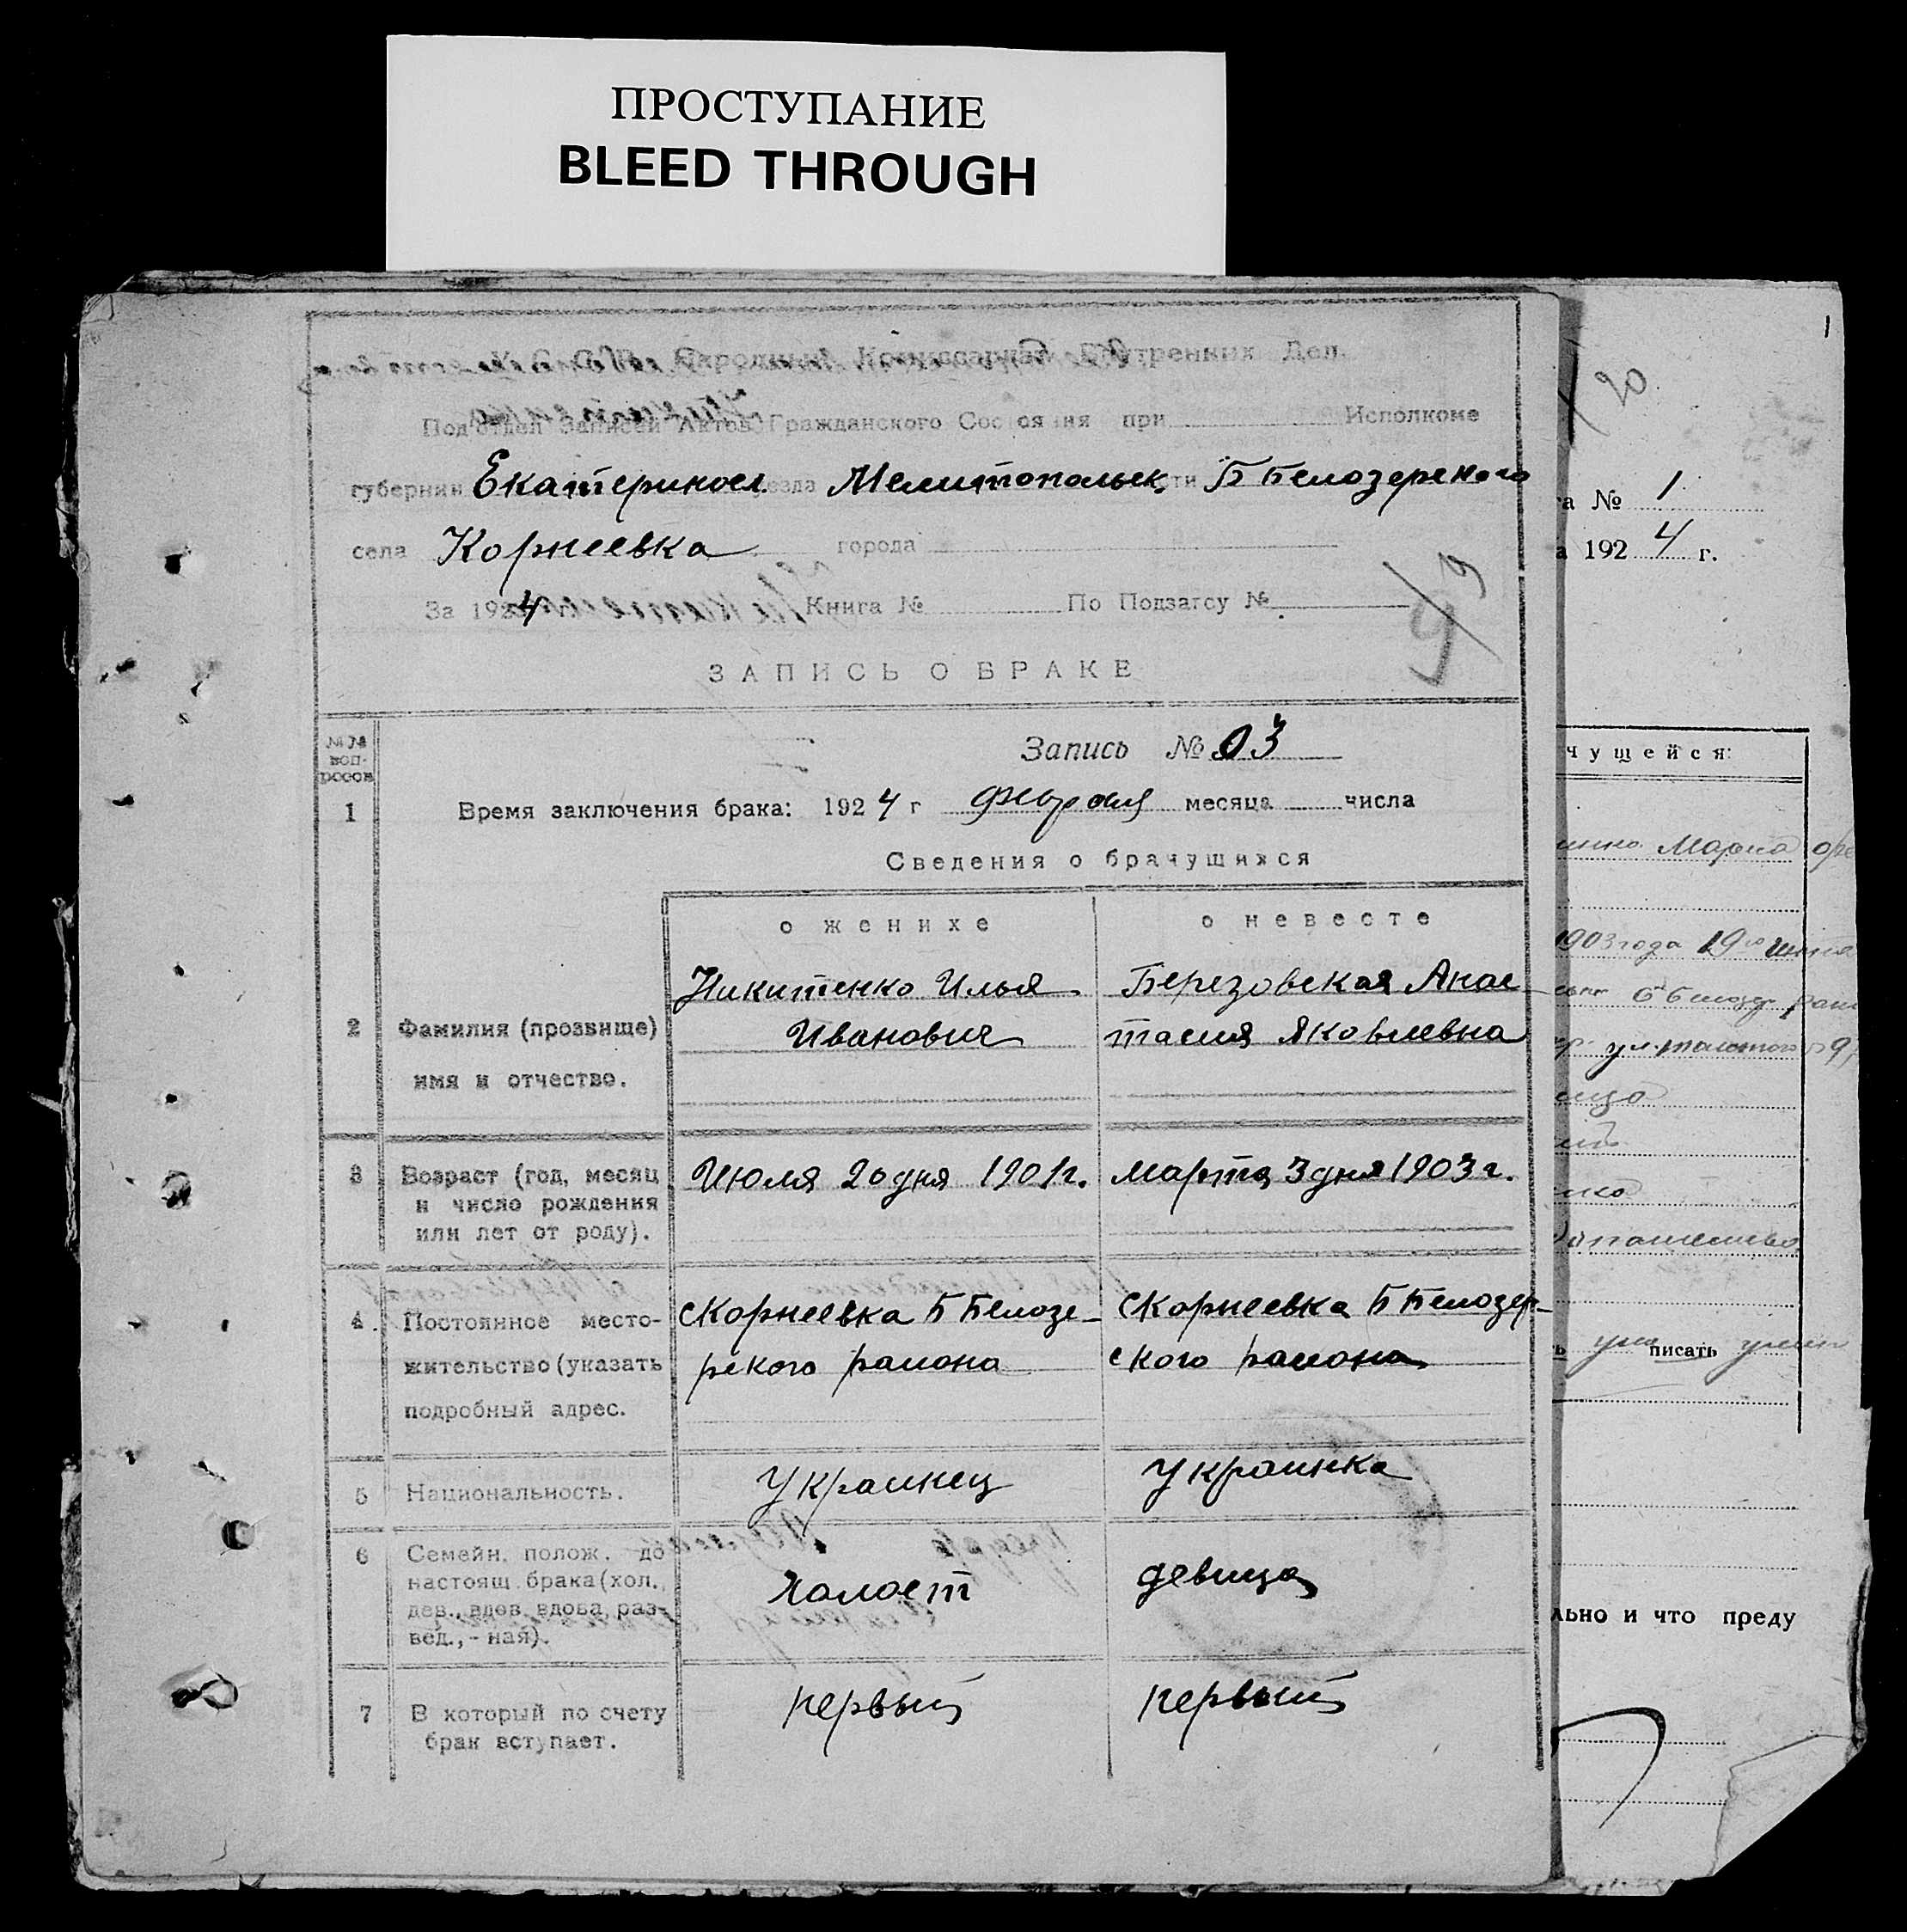 ПРОСТУПАНИЕ
BLEED THROUGH
Народный Комиссариат Внутренних Дел.
Подотдел Записей Актов Гражданского Состояния при Исполкоме
губернии Екатеринosл. уезда Мелитопольск. Б Белозерского
села Корнеевка города
За 1924 Книга № По Подзагсу №
99
ЗАПИСЬ О БРАКЕ
№№ вопросов
Запись № 03
1 Время заключения брака: 1924 г месяца числа
Сведения о брачущихся
о женихе о невесте
2 Фамилия (прозвище) имя и отчество.
Никитенко Илья Иванович
Березовская Анастасия Яковлевна
3 Возраст (год, месяц и число рождения или лет от роду).
Июля 20 дня 1901г.
Марта 3 дня 1903 г.
4. Постоянное местожительство (указать подробный адрес.
с Корнеевка Б Белозерского района
с Корнеевка Б Белозерского района
5 Национальность.
Украинец
Украинка
6 Семейн. полож. до настоящ. брака (хол., дев., вдов. вдова, развед.,-ная).
Холост
девица
7 В который по счету брак вступает.
первый
первый
1
20
а № 1
а 1924 г.
чущейся:
Мария
1903 года 19го
писать
льно и что преду